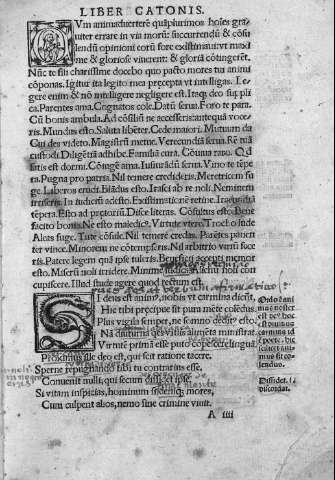 LIBER CATONIS.
Vm animaduerterē quāplurimos hoīes gra
uiter errare in via morū: succurrendū & cōsu
lendū opinioni eorū fore existimaui: vt maxi
me & gloriose viuerent: & gloriā cōtingerēt.
Nūc te fili charissime docebo quo pacto mores tui animi
cōponas. Igitur ita legito mea precepta vt intelligas. Le
gere enim & nō intelligere negligere est. Itaq; deo supplica.
Parentes ama. Cognatos cole. Datū serua. Foro te para.
Cū bonis ambula. Ad cōsiliū ne accesseris anteq̄ voceris.
Mundus esto. Saluta libēter. Cede maiori. Mutuum da
Cui des videto. Magistrū metue. Verecundiā serua. Rē tuā
custodi. Diligētiā adhibe. Familiā cura. Cōiurū raro. Qd
satis est dormi. Cōiugē ama. Iusiurādū serua. Vino te tēpera.
Pugna pro patria. Nil temere credideris. Meretricem fu
ge. Liberos erudi. Blādus esto. Irasci ab re noli. Neminem
irriseris. In iudicio adesto. Existimationē retine. Iracundiā
tēpera. Esto ad pretoriū. Disce literas. Cōsultus esto. Bene
facito bonis. Ne esto maledicꝰ. Virtute vtere. Troco lude
Aleas fuge. Tute cōsule. Nil temere credas. Parētes patien
ter vince. Minorem ne cōtempseris. Nil arbitrio viriū fece
ris. Patere legem quā ipse tuleris. Beneficii accepti memor
esto. Miserū noli irridere. Minime iudica. Alienū noli con
cupiscere. Illud stude agere quod rectum est.
SI deus est animꝰ, nobis vt carmina dicūt,
Hic tibi precipue sit pura mēte colēdus.
Plus vigila semper, ne somno deditꝰ esto,
Nā diuturna q̄es vitiis alimenta ministrat.
Virtutē primā esse puto cōpescere linguā
Proximus ille deo est, qui scit ratione tacere.
Sperne repugnando tibi tu contrarius esse.
Conueniet nulli, qui secum dissidet ipse.
Si vitam inspicias, hominum si deniq; mores,
Cum culpent alios, nemo sine crimine viuit.
Dissidet. i.
discordat.
A iiii